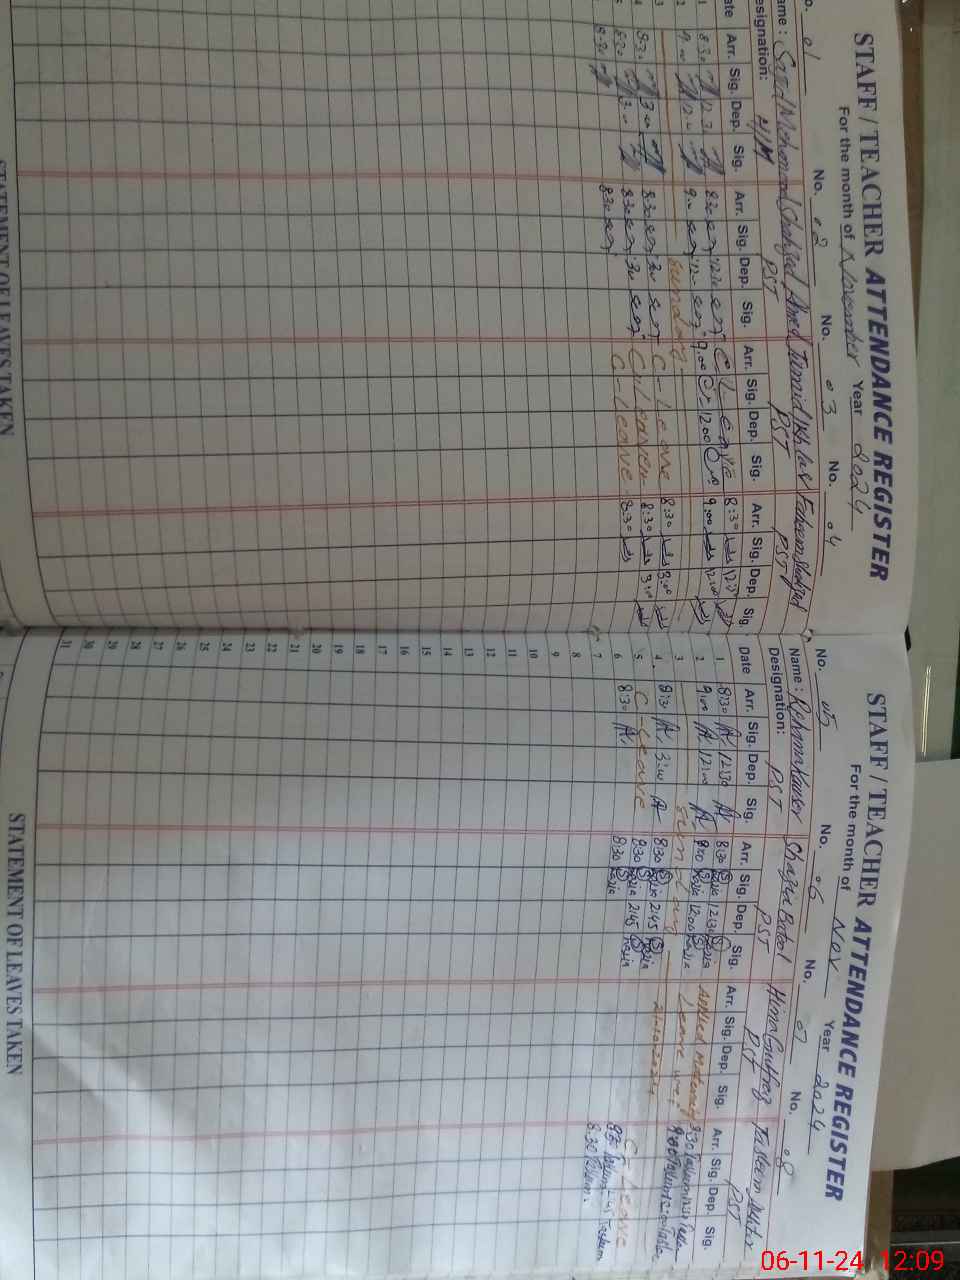 STAFF / TEACHER ATTENDANCE REGISTER
For the month of November Year 2024
No. 01 No. 02 No. 03 No. 04
Name : Syed Mohammad Shahzad Ahmed Faheem Shahzad
Designation: H/M PST PST PST
Date Arr. Sig. Dep. Sig. Arr. Sig. Dep. Sig. Arr. Sig. Dep. Sig. Arr. Sig. Dep. Sig.
1 8:30 12:30 8:30 12:30 C-Leave 8:30
2 9:00 12:00 9:00 12:00 9:00 12:00 9:00 12:00
3 Sunday
4 8:30 3:00 8:30 3:00 C-Leave 8:30 3:00
5 8:30 3:00 8:30 3:00 C-Leave 8:30 3:00
8:30 8:30 C-Leave 8:30
STATEMENT OF LEAVES TAKEN
STAFF / TEACHER ATTENDANCE REGISTER
For the month of Nov Year 2024
No. 05 No. 06 No. 07 No. 08
Name : Rehana Kauser Shazia Batool Hina Tasleem Akhtar
Designation: PST PST PST PST
Date Arr. Sig. Dep. Sig. Arr. Sig. Dep. Sig. Arr. Sig. Dep. Sig. Arr. Sig. Dep. Sig.
1 8:30 12:30 8:30 Shazia 12:30 Shazia Applied Maternity 8:30
2 9:00 12:00 9:00 Shazia 12:00 Shazia Leave 9:00
3 Sunday
4 8:30 3:00 8:30 Shazia 2:45 Shazia C-Leave
5 C-Leave 8:30 Shazia 2:45 Shazia 8:30 Tasleem 2:45 Tasleem
6 8:30 8:30 Shazia 8:30 Tasleem
7
8
9
10
11
12
13
14
15
16
17
18
19
20
21
22
23
24
25
26
27
28
29
30
31
STATEMENT OF LEAVES TAKEN
06-11-24 12:09